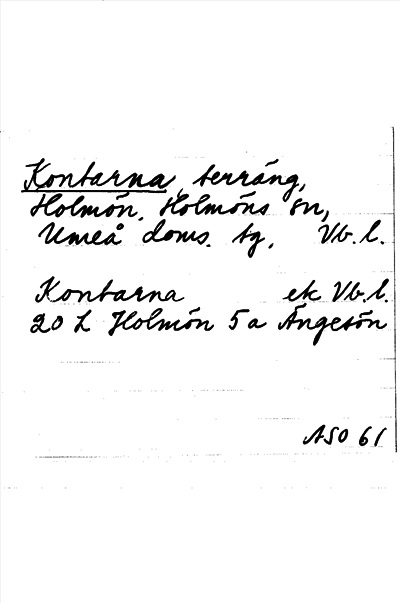 Kontarna, terräng,
Holmön, Holmöns sn,
Umeå doms. tg, Vb. l.
Kontarna ek Vb. l.
20 L Holmön 5 a Ängesön
ASO 61